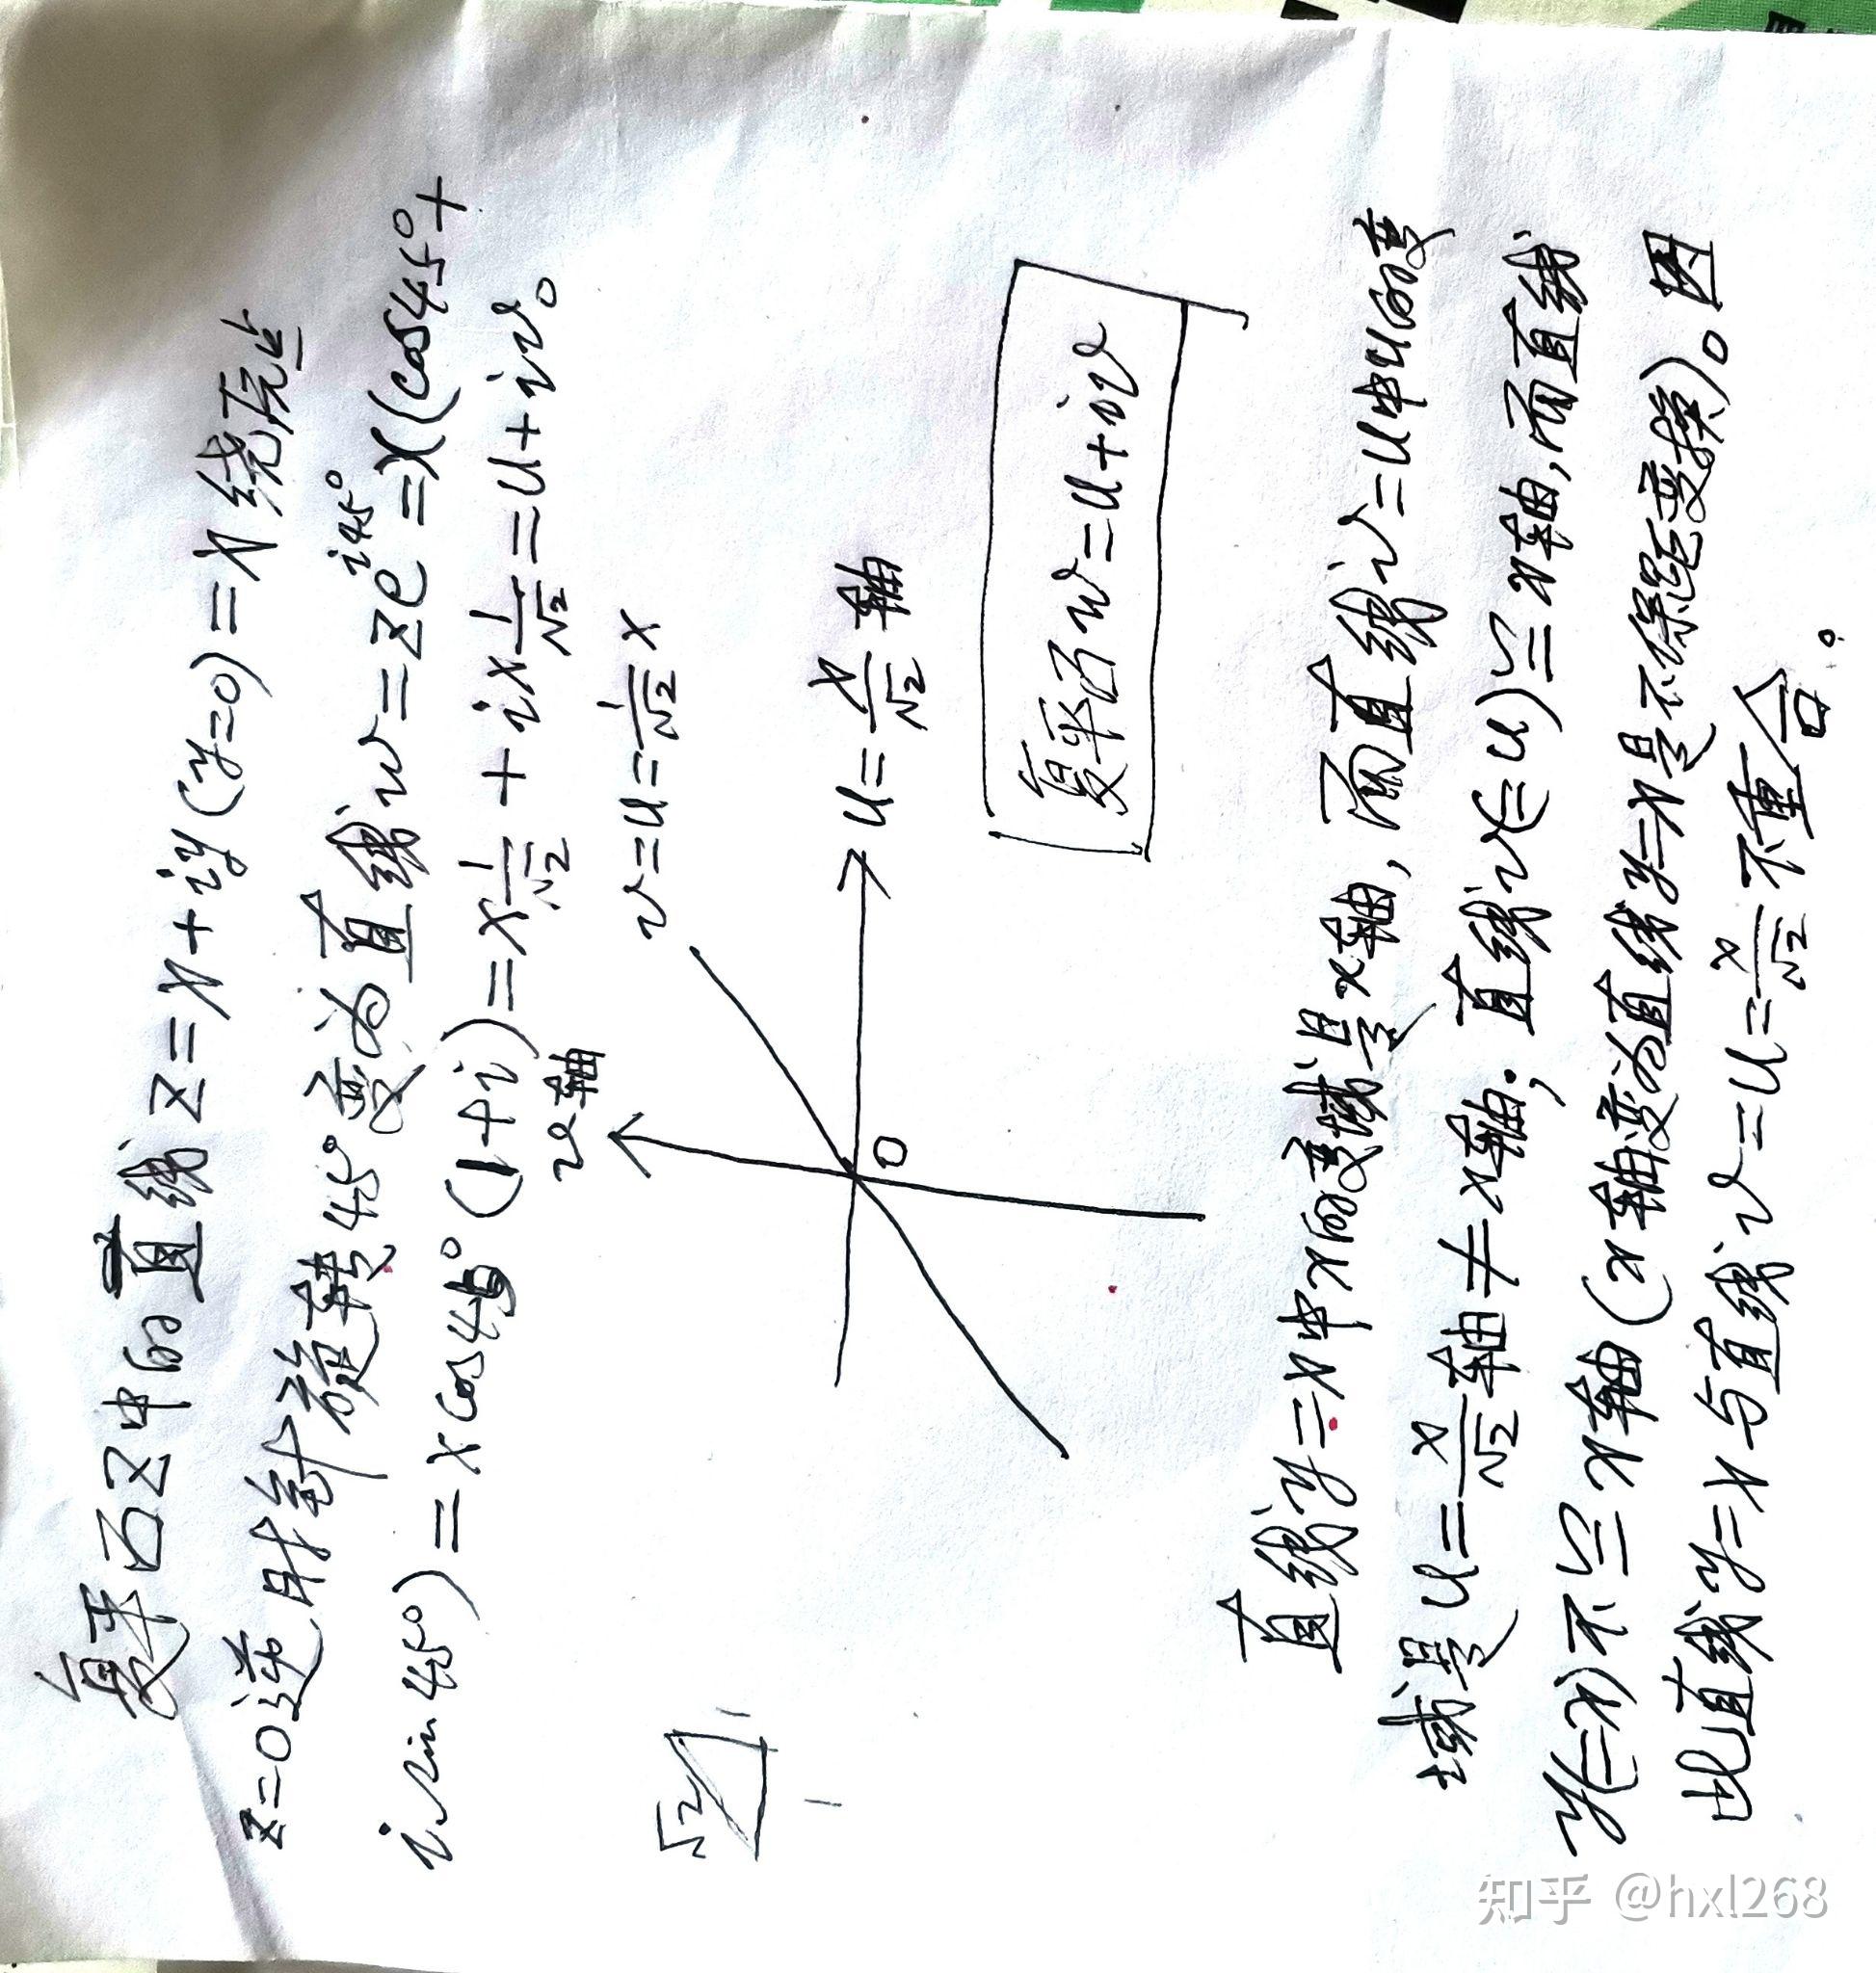 复平面z中的直线z=x+iy(y=0)=x绕原点
z=0逆时针旋转45°变为直线w=ze^{i45°}=x(cos45°+
isin45°)=xcos45°(1+i)=x\frac{1}{√2}+ix\frac{1}{√2}=u+iv。
v轴
v=u=\frac{1}{√2}x
u=\frac{x}{√2}轴
0
√2
1
1
复平面w=u+iv
直线y=x中x的变域是x轴,而直线v=u中u的变
域是u=\frac{x}{√2}轴≠x轴;直线v(=u)≌x轴,而直线
y(=x)不≌x轴(x轴变为直线y=x是不保距变换)。因
此直线y=x与直线v=u=\frac{x}{√2}不重合。
知乎 @hxl268